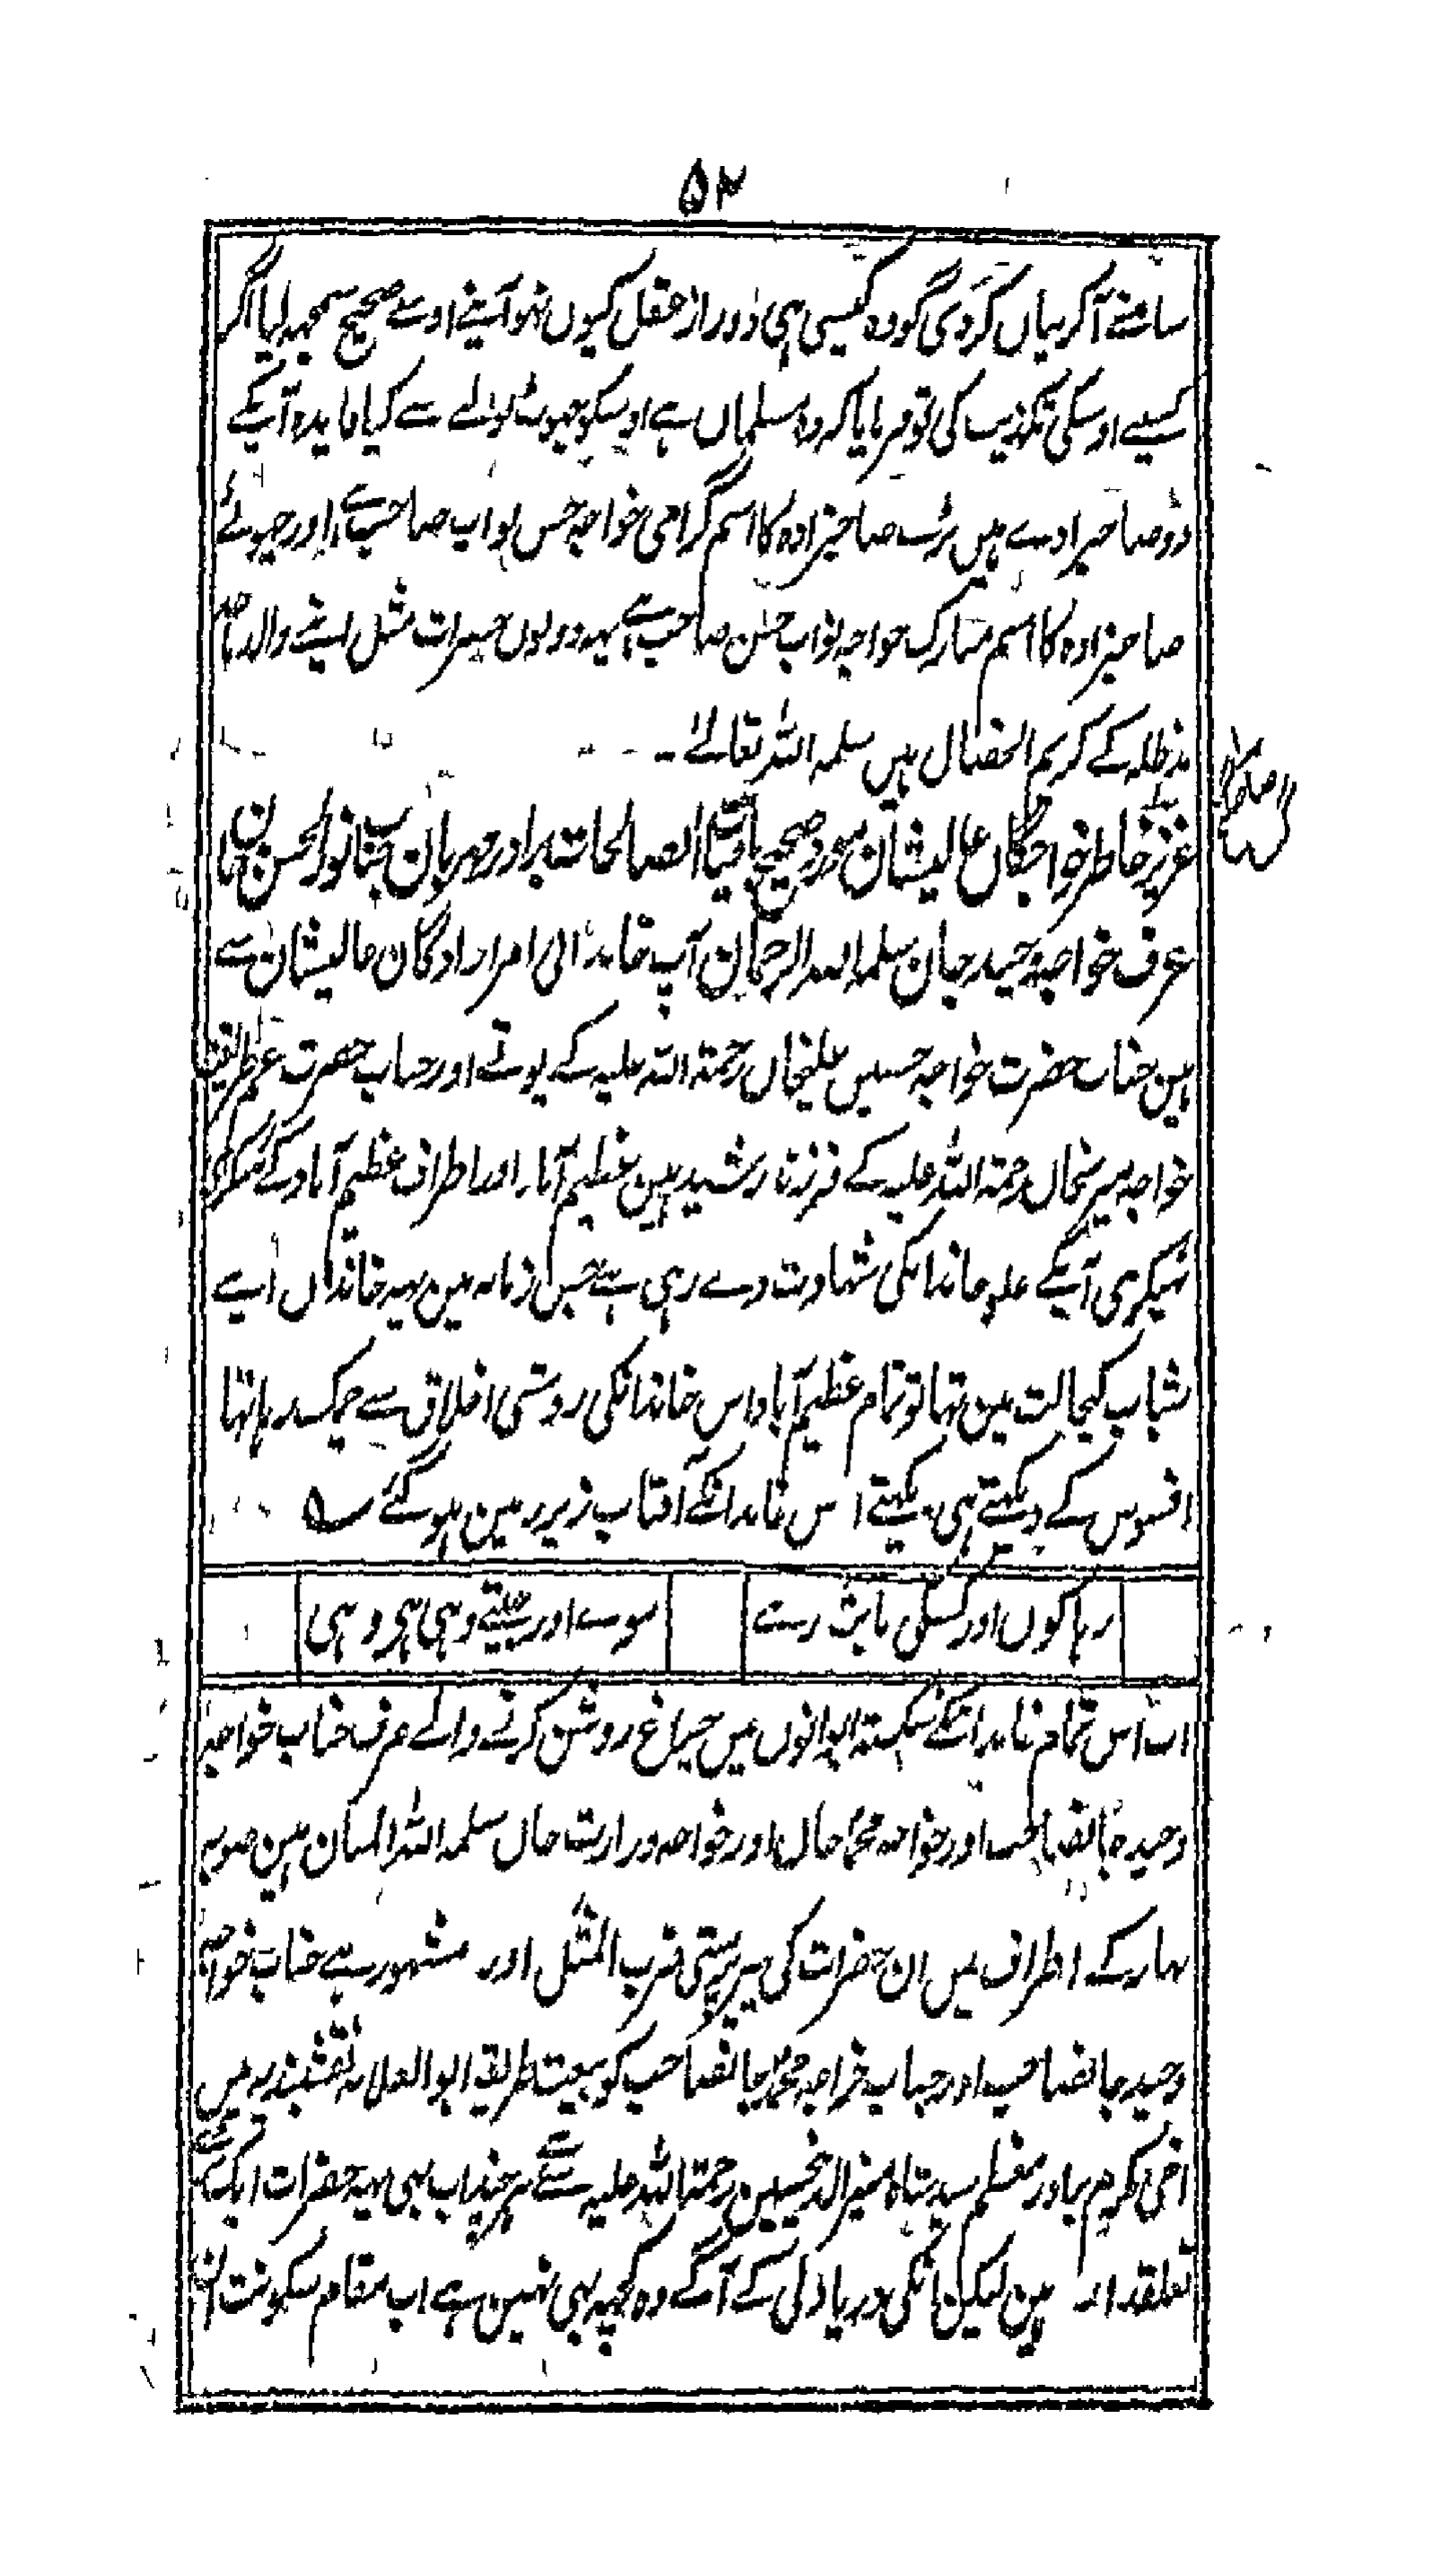 ۵۲
سامنے آکر بیاں کردی گو وہ کیسی ہی دور از عقل کیوں نہو آپنے اوسے صحیح سمجہہ لیا اگر
کسیے اوسکی تکذیب کی تو فرمایا کہ وہ مسلماں ہے اوسکو جہوٹ بولے سے کیا فایدہ آپکے
دو صاحبزادے ہیں بڑے صاحبزادہ کا اسم گرامی خواجہ حسن نواب صاحب ہے اور چہوٹے
صاحبزادہ کا اسم مبارک خواجہ نواب حسن صاحب ہے یہہ دونوں حضرات مثل اپنے والد ماجد
مدظلہ کے کریم الخصال ہیں سلمہ اللہ تعالے ۔
عزیز خاطر خواجگاں عالیشان مورد صحیح الصالحات برادر مہربان جناب نور الحسن خان
عرف خواجہ وحید جان سلمہ اللہ الرحمان آپ خاندانی امرا زادگان عالیشان سے
ہین جناب حضرت خواجہ حسیں علیخاں رحمتہ اللہ علیہ کے پوتے اور جناب حضرت عم طریقت
خواجہ میر نخاں رحمتہ اللہ علیہ کے فرزند رشید ہین عظیم آباد اور اطراف عظیم آباد کے ٹہیکری
ٹہیکری آپکے علو خاندانکی شہادت دے رہی ہے جس زمانہ مین یہہ خانداں اپنے
شباب کیحالت مین تہا تو تمام عظیم آباد اس خاندانکی روشنی اخلاق سے چمک رہا تہا
افسوس کے دیکہتے ہی دیکہتے اس خاندانکے آفتاب زیر زمین ہو گئے ؎
رہا کوں اور کسکی بابت رہے
سوے اور جیتے وہی ہی وہی
اب اس تمام خاندانکے شکستہ ایوانوں میں چراغ روشن کرنے والے صرف جناب خواجہ
وحید جانصاحب اور خواجہ محمد جان اور خواجہ وزارت جان سلمہ اللہ المنان ہین صوبہ
بہار کے اطراف میں ان حضرات کی سیر چشمی ضرب المثل اور مشہور ہے جناب خواجہ
وحید جانصاحب اور جناب خواجہ محمد جانصاحب کو بیعت طریقہ ابو العلائیہ نقشبندیہ میں
اخی مکرم برادر معظم سید شاہ منیر الدین حسین رحمتہ اللہ علیہ سے ہے ہر چند اب بہی یہہ حضرات ایک
تعلقدار ہین لیکن انکی دریا دلی کے آگے وہ کچہہ بہی نہین ہے اب مقام سکونت ان